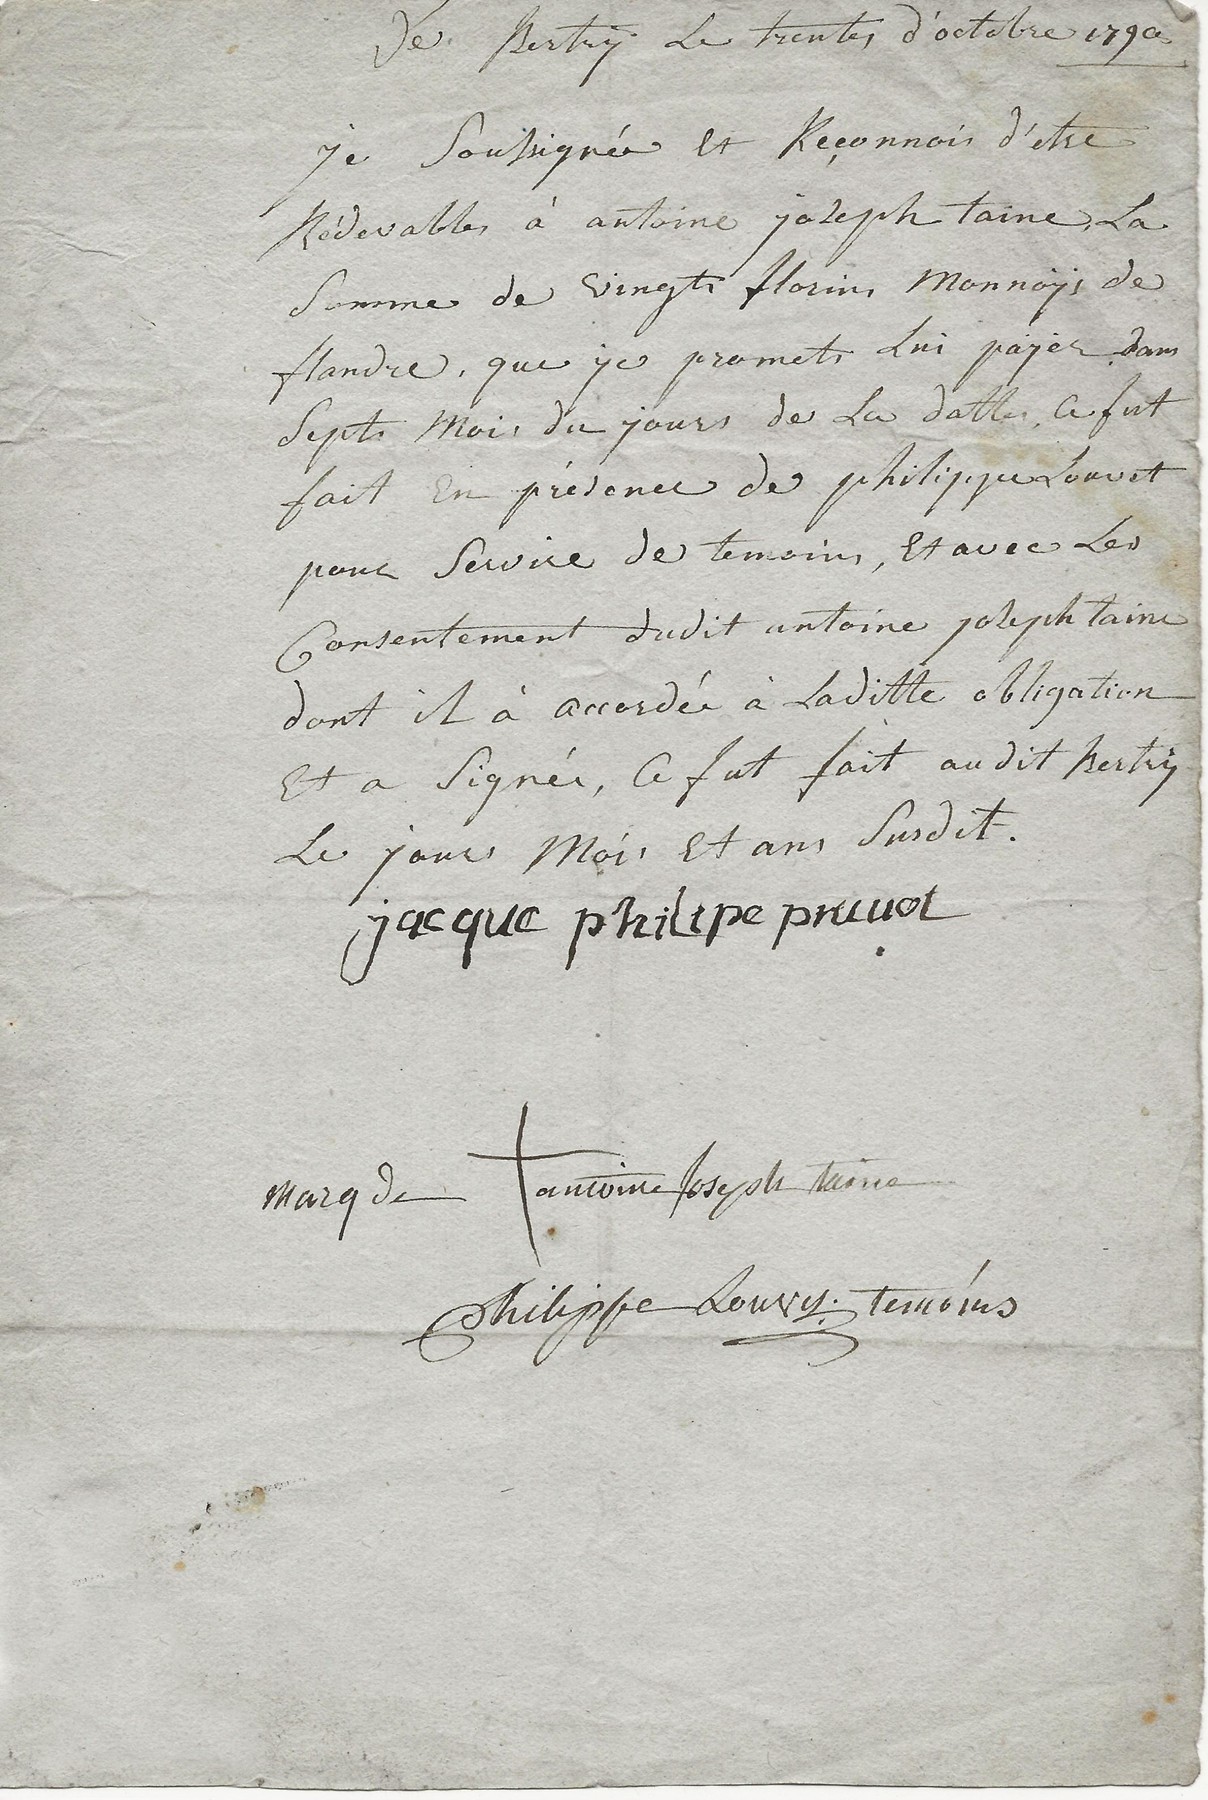 De Bertrÿ Le trentes d'octobre 1790
je Soussignée Et Reçonnois d'etre
Rédevables à antoine joseph taine, La
Somme de Vingts florins Monnoÿs de
flandre, que je promets Lui païer dans
Septs Mois du jours de La dattes, Ce fut
fait En présence de philippe Louvet
pour Service de temoins, Et avec Les
Consentement dudit antoine joseph taine
dont il à accordée à Laditte obligation
Et a Signée, Ce fut fait audit Bertrÿ
Le jours Mois Et ans Susdit.
jacque philipe pruuot
marq de antoine Joseph taine
philippe Louvet. temoins